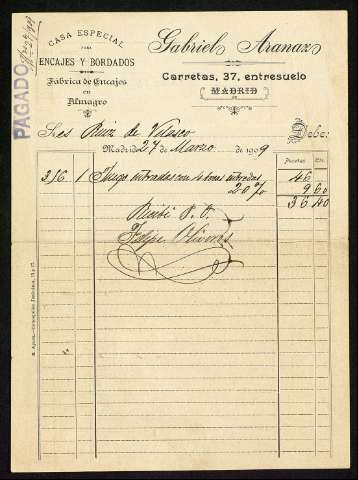 CASA ESPECIAL
PARA
ENCAJES Y BORDADOS
Fábrica de Encajes
en
Almagro
PAGADO
Gabriel Aranaz
Carretas, 37, entresuelo
MADRID
Sres Ruiz de Velasco Debe:
Madrid 27 de Marzo de 1909
Pesetas Cts.
316 1 Juego entredos con 4 bones entredos 46
20 % 9 60
36 40
Recibí P. O.
Felipe Oliveros